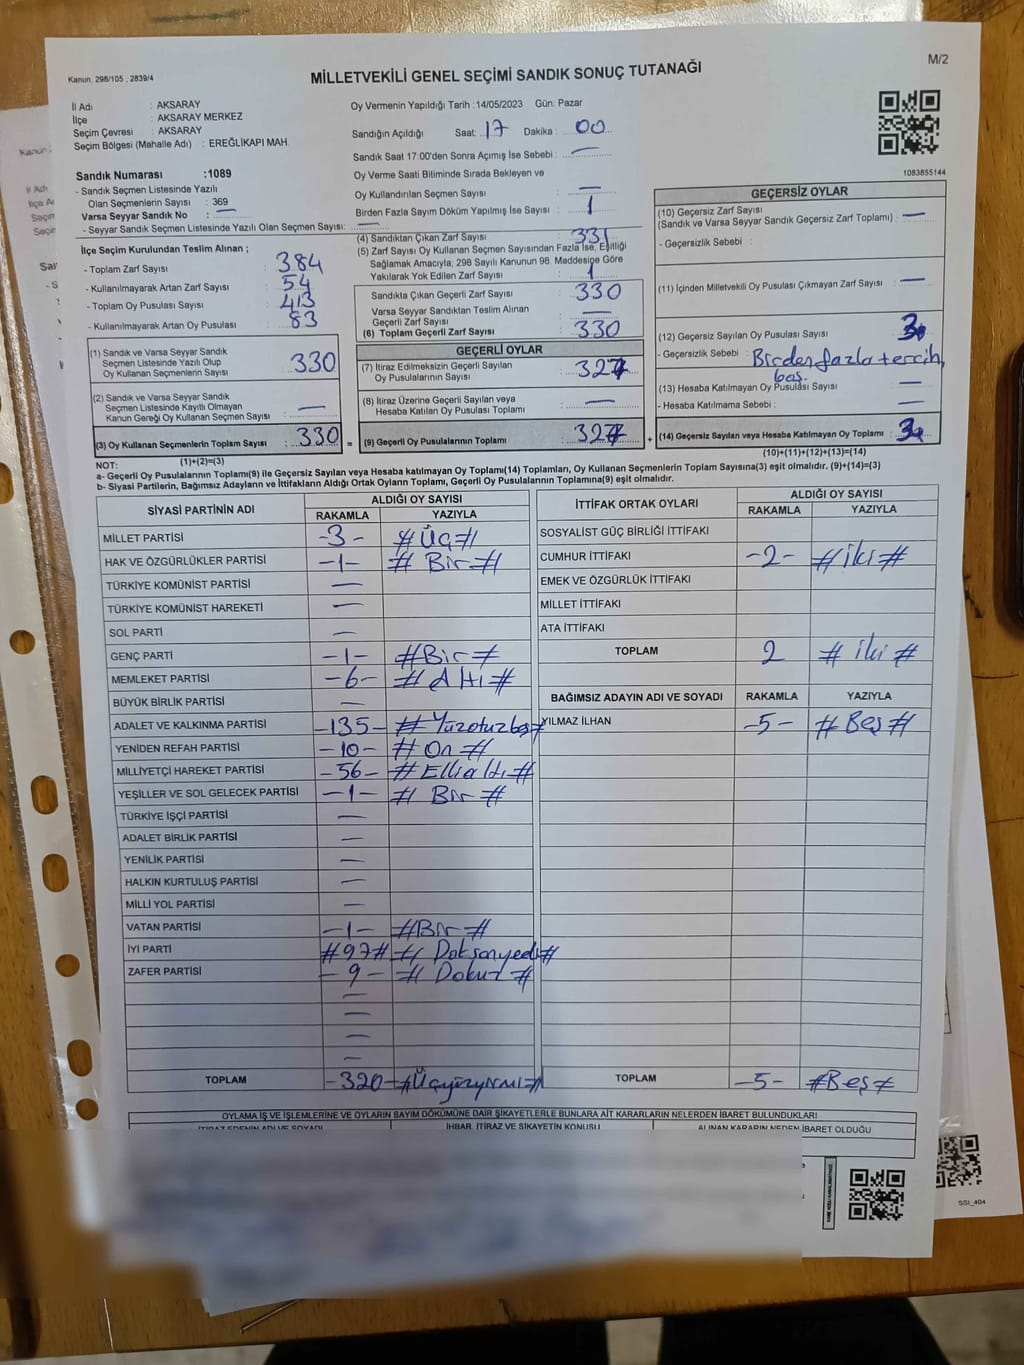 Kanun: 298/105 , 2839/4
M/2
MİLLETVEKİLİ GENEL SEÇİMİ SANDIK SONUÇ TUTANAĞI
İl Adı : AKSARAY
İlçe : AKSARAY MERKEZ
Seçim Çevresi : AKSARAY
Seçim Bölgesi (Mahalle Adı) : EREĞLİKAPI MAH.
Oy Vermenin Yapıldığı Tarih :14/05/2023 Gün: Pazar
Sandığın Açıldığı Saat: 17 Dakika : 00
Sandık Saat 17:00'den Sonra Açımış İse Sebebi : —
Oy Verme Saati Bitiminde Sırada Bekleyen ve
Oy Kullandırılan Seçmen Sayısı : —
Birden Fazla Sayım Döküm Yapılmış İse Sayısı : 1
1083855144
Sandık Numarası :1089
- Sandık Seçmen Listesinde Yazılı
Olan Seçmenlerin Sayısı : 369
Varsa Seyyar Sandık No : —
- Seyyar Sandık Seçmen Listesinde Yazılı Olan Seçmen Sayısı: —
İlçe Seçim Kurulundan Teslim Alınan ;
- Toplam Zarf Sayısı : 384
- Kullanılmayarak Artan Zarf Sayısı : 54
- Toplam Oy Pusulası Sayısı : 413
- Kullanılmayarak Artan Oy Pusulası : 83
(1) Sandık ve Varsa Seyyar Sandık
Seçmen Listesinde Yazılı Olup
Oy Kullanan Seçmenlerin Sayısı : 330
(2) Sandık ve Varsa Seyyar Sandık
Seçmen Listesinde Kayıtlı Olmayan
Kanun Gereği Oy Kullanan Seçmen Sayısı : —
(3) Oy Kullanan Seçmenlerin Toplam Sayısı : 330 =
(1)+(2)=(3)
(4) Sandıktan Çıkan Zarf Sayısı : 331
(5) Zarf Sayısı Oy Kullanan Seçmen Sayısından Fazla İse, Eşitliği
Sağlamak Amacıyla, 298 Sayılı Kanunun 98. Maddesine Göre
Yakılarak Yok Edilen Zarf Sayısı : 1
Sandıkta Çıkan Geçerli Zarf Sayısı : 330
Varsa Seyyar Sandıktan Teslim Alınan
Geçerli Zarf Sayısı : —
(6) Toplam Geçerli Zarf Sayısı : 330
GEÇERLİ OYLAR
(7) İtiraz Edilmeksizin Geçerli Sayılan
Oy Pusulalarının Sayısı : 327
(8) İtiraz Üzerine Geçerli Sayılan veya
Hesaba Katılan Oy Pusulası Toplamı : —
(9) Geçerli Oy Pusulalarının Toplamı : 327 +
GEÇERSİZ OYLAR
(10) Geçersiz Zarf Sayısı
(Sandık ve Varsa Seyyar Sandık Geçersiz Zarf Toplamı) : —
- Geçersizlik Sebebi :
(11) İçinden Milletvekili Oy Pusulası Çıkmayan Zarf Sayısı : —
(12) Geçersiz Sayılan Oy Pusulası Sayısı : 3
- Geçersizlik Sebebi : Birden fazla tercih,
boş.
(13) Hesaba Katılmayan Oy Pusulası Sayısı : —
- Hesaba Katılmama Sebebi : —
(14) Geçersiz Sayılan veya Hesaba Katılmayan Oy Toplamı : 3
(10)+(11)+(12)+(13)=(14)
NOT:
a- Geçerli Oy Pusulalarının Toplamı(9) ile Geçersiz Sayılan veya Hesaba katılmayan Oy Toplamı(14) Toplamları, Oy Kullanan Seçmenlerin Toplam Sayısına(3) eşit olmalıdır. (9)+(14)=(3)
b- Siyasi Partilerin, Bağımsız Adayların ve İttifakların Aldığı Ortak Oyların Toplamı, Geçerli Oy Pusulalarının Toplamına(9) eşit olmalıdır.
SİYASİ PARTİNİN ADI ALDIĞI OY SAYISI
RAKAMLA YAZIYLA
MİLLET PARTİSİ -3- # Üç #
HAK VE ÖZGÜRLÜKLER PARTİSİ -1- # Bir #
TÜRKİYE KOMÜNİST PARTİSİ —
TÜRKİYE KOMÜNİST HAREKETİ —
SOL PARTİ —
GENÇ PARTİ -1- #Bir#
MEMLEKET PARTİSİ -6- # Altı #
BÜYÜK BİRLİK PARTİSİ —
ADALET VE KALKINMA PARTİSİ -135- # Yüzotuzbeş #
YENİDEN REFAH PARTİSİ -10- # On #
MİLLİYETÇİ HAREKET PARTİSİ -56- # Ellialtı #
YEŞİLLER VE SOL GELECEK PARTİSİ -1- # Bir #
TÜRKİYE İŞÇİ PARTİSİ —
ADALET BİRLİK PARTİSİ —
YENİLİK PARTİSİ —
HALKIN KURTULUŞ PARTİSİ —
MİLLİ YOL PARTİSİ —
VATAN PARTİSİ -1- #Bir #
İYİ PARTİ #97# # Doksanyedi #
ZAFER PARTİSİ -9- # Dokuz #
—
—
—
—
TOPLAM -320- #Üçyüzyirmi#
İTTİFAK ORTAK OYLARI ALDIĞI OY SAYISI
RAKAMLA YAZIYLA
SOSYALİST GÜÇ BİRLİĞİ İTTİFAKI
CUMHUR İTTİFAKI -2- # iki #
EMEK VE ÖZGÜRLÜK İTTİFAKI
MİLLET İTTİFAKI
ATA İTTİFAKI
TOPLAM 2 # iki #
BAĞIMSIZ ADAYIN ADI VE SOYADI RAKAMLA YAZIYLA
YILMAZ İLHAN -5- # Beş #
TOPLAM -5- #Beş#
OYLAMA İŞ VE İŞLEMLERİNE VE OYLARIN SAYIM DÖKÜMÜNE DAİR ŞİKAYETLERLE BUNLARA AİT KARARLARIN NELERDEN İBARET BULUNDUKLARI
İTİRAZ EDENİN ADI VE SOYADI İHBAR, İTİRAZ VE ŞİKAYETİN KONUSU ALINAN KARARIN NEDEN İBARET OLDUĞU
SSI_404